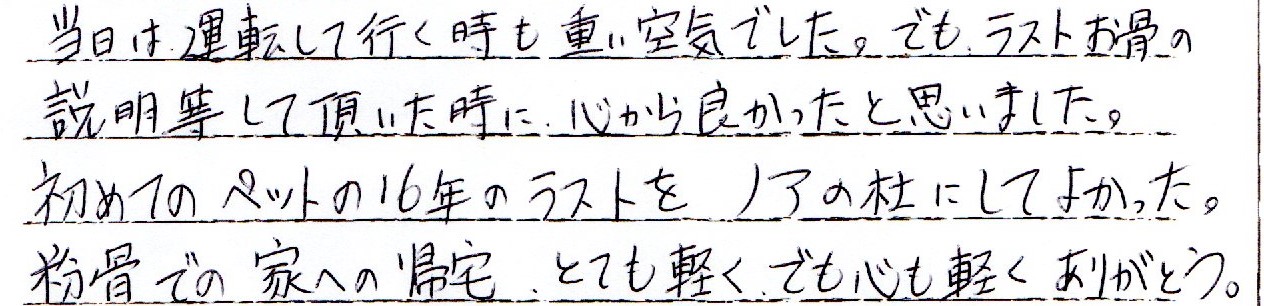 当日は、運転して行く時も重い空気でした。でも、ラストお骨の
説明等して頂いた時に、心から良かったと思いました。
初めてのペットの16年のラストを ノアの杜にしてよかった。
粉骨での家への帰宅、とても軽く、でも心も軽くありがとう。